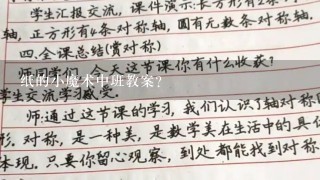 学生汇报交流，课件演示：长方形有2条
轴，正方形有4条对称轴，圆有无数条对称轴.
四.全课总结(赏对称)
今天这节课你有什么收获？
纸的小魔术中班教案？
学生交流学习感受.
师：通过这节课的学习，我们认识了轴对称
形.对称，是一种美，是数学美在生活中的具
体现.只要你留心观察，到处都能找到对称